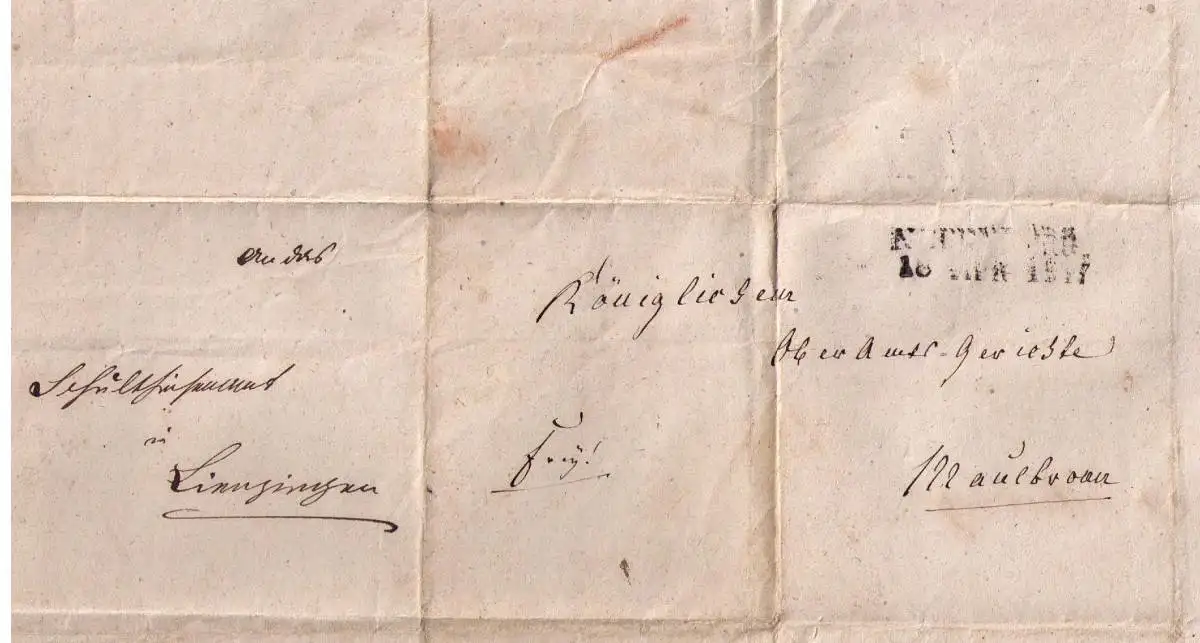 an das
Schultheißenamt
in
Lienzingen
Königlichen
OberAmts-Gerichte
Frey!
Maulbronn
18